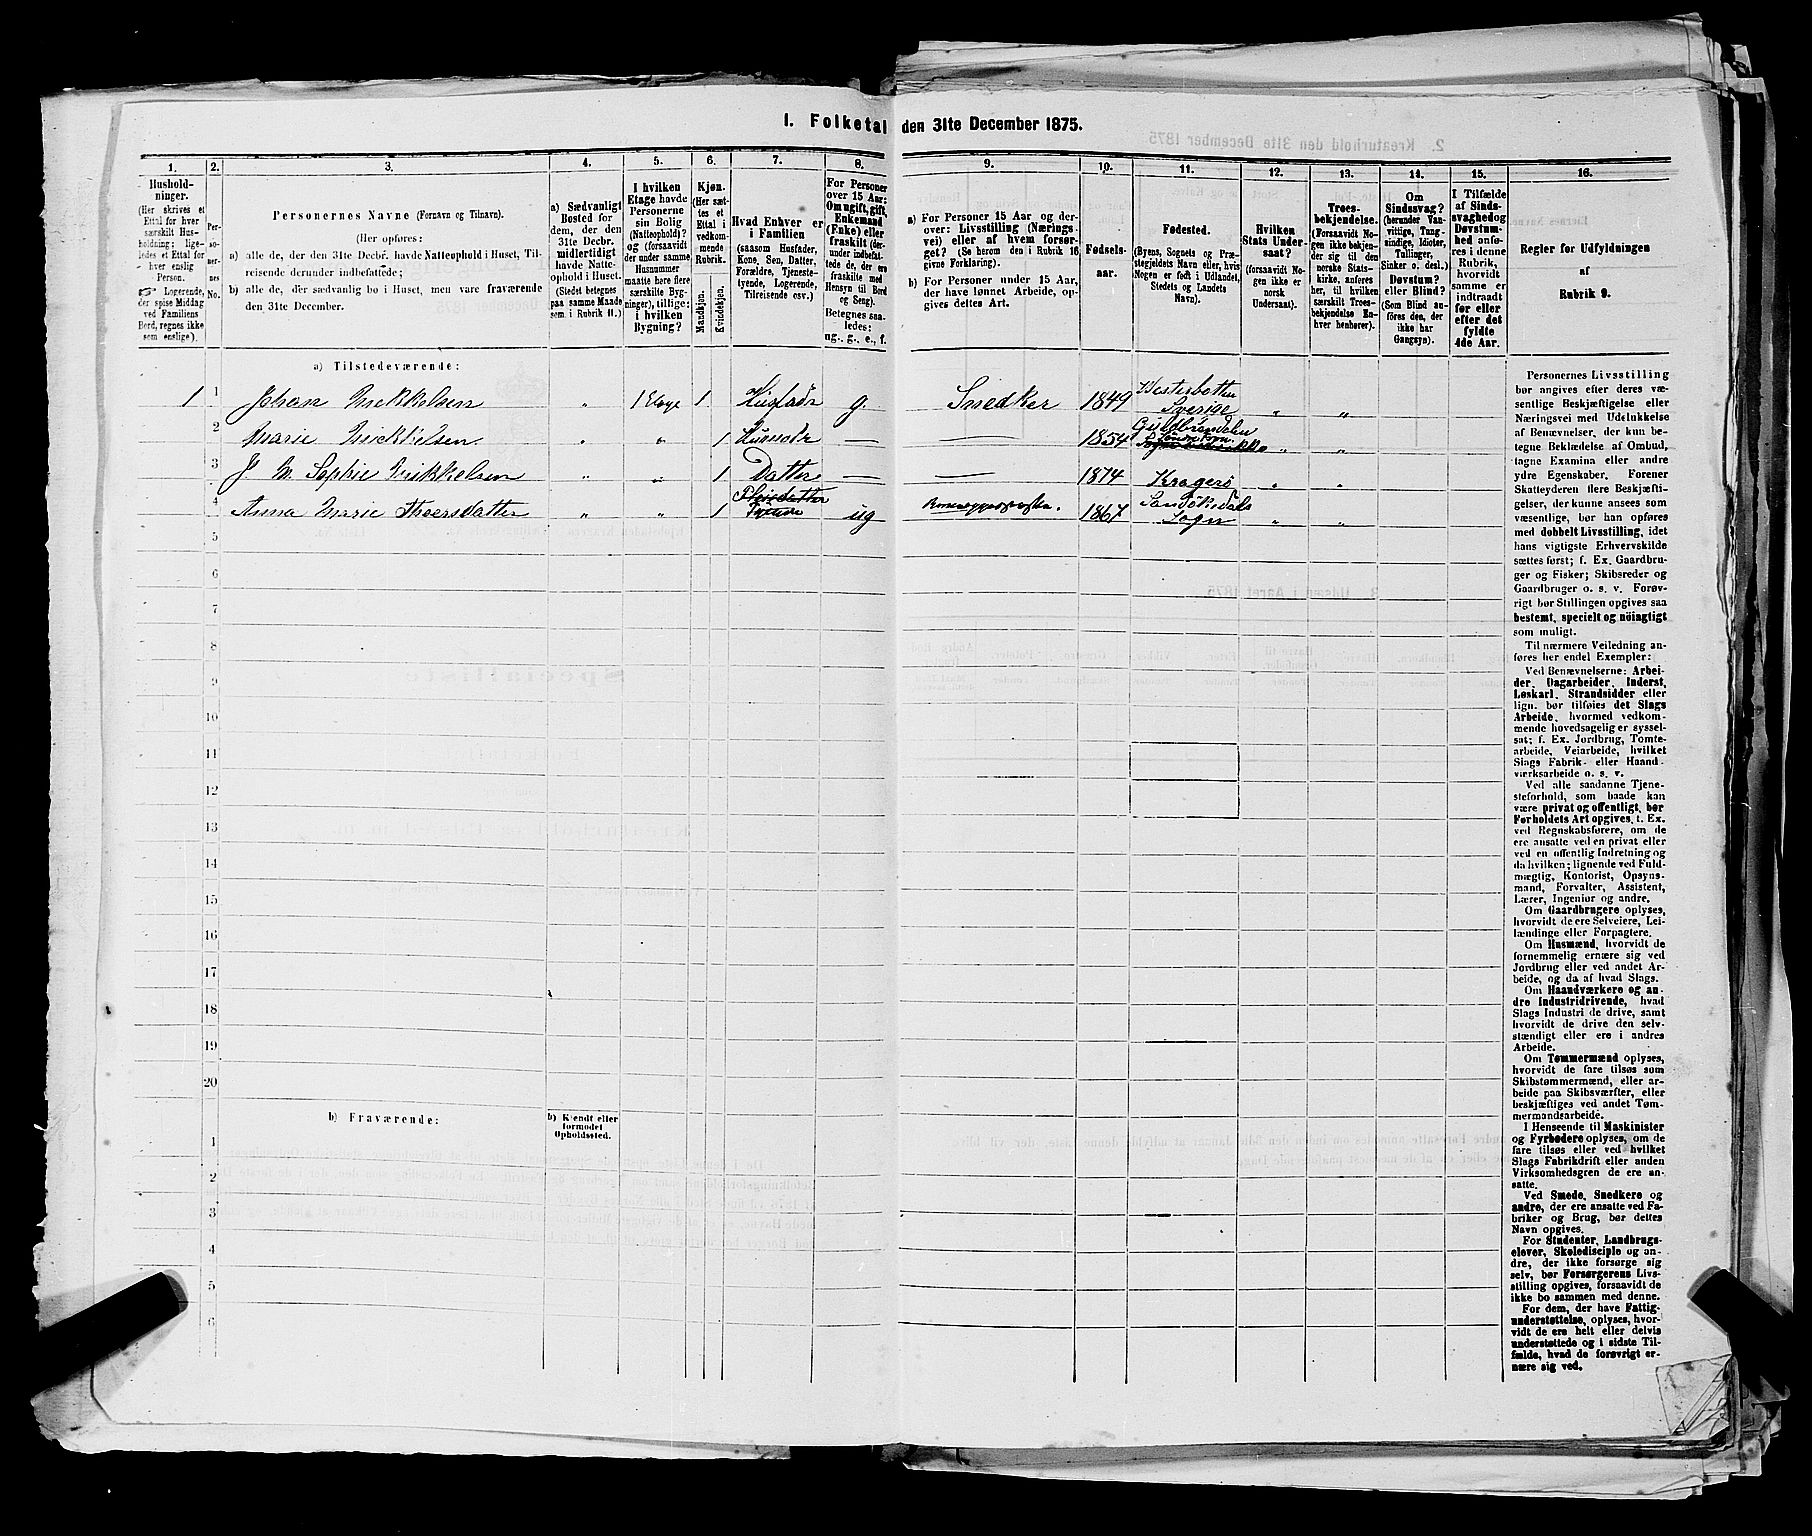 I. Folketal den 31te December 1875.
1.
Hushold-
ninger.
(Her skrives et
Ettal for hver
særskilt Hus-
holdning; lige-
ledes et Ettal for
hver enslig
Person.
Logerende,
der spise Middag
ved Familiens
Bord, regnes ikke
som enslige).
2.
Per-
so-
ner-
nes
No.
3.
Personernes Navne (Fornavn og Tilnavn).
(Her opføres:
a) alle de, der den 31te Decbr. havde Natteophold i Huset, Til-
reisende derunder indbefattede;
b) alle de, der sædvanlig bo i Huset, men vare fraværende
den 31te December.
4.
a) Sædvanligt
Bosted for
dem, der den
31te Decbr.
midlertidigt
havde Natte-
ophold i Huset.
(Stedet betegnes
paa samme Maade
som i Rubrik 11.)
5.
I hvilken
Etage havde
Personerne
sin Bolig
(Natteophold)?
og (forsaavidt
der under samme
Husnummer
maatte høre flere
særskilte Byg-
ninger), tillige:
i hvilken
Bygning?
6.
Kjøn.
(Her sæt-
tes et
Ettal i
vedkom-
mende
Rubrik.
Mandkjøn.
Kvindekjøn.
7.
Hvad Enhver er
i Familien
(saasom Husfader,
Kone, Søn, Datter,
Forældre, Tjeneste-
tyende, Logerende,
Tilreisende osv.)
8.
For Personer
over 15 Aar:
Om ugift, gift,
Enkemand
(Enke) eller
fraskilt (der-
under indbefat-
tede de, der ere
fraskilte med
Hensyn til Bord
og Seng).
Betegnes saa-
ledes:
ug., g., e., f.
9.
a) For Personer 15 Aar og der-
over: Livsstilling (Nærings-
vei) eller af hvem forsør-
get? (Se herom den i Rubrik 16
givne Forklaring).
b) For Personer under 15 Aar,
der have lønnet Arbeide, op-
gives dettes Art.
10.
Fødsels-
aar.
11.
Fødested.
(Byens, Sognets og Præ-
stegjeldets Navn eller, hvis
Nogen er født i Udlandet,
Stedets og Landets
Navn).
12.
Hvilken
Stats Under-
saat?
(forsaavidt No-
gen ikke er
norsk
Undersaat).
13.
Troes-
bekjendelse.
(Forsaavidt No-
gen ikke bekjen-
der sig til den
norske Stats-
kirke, anføres
her, til hvilken
særskilt Troes-
bekjendelse En-
hver henhører).
14.
Om
Sindssvag?
(herunder Van-
vittige, Tung-
sindige, Idioter,
Tullinger,
Sinker o. desl.)
Døvstum?
eller Blind?
(Som Blind an-
føres den, der
ikke har
Gangsyn).
15.
I Tilfælde
af Sinds-
svaghed og
Døvstum-
hed anfø-
res i denne
Rubrik,
hvorvidt
samme er
indtraadt
før eller
efter det
fyldte
4de Aar.
16.
Regler for Udfyldningen
af
Rubrik 9.
a) Tilstedeværende:
1 1 Johan Mikkelsen „ 1 Etage 1 Husfadr g. Snedker 1849 Westerbotten Sverige „ „
2 Marie Mickkelsen „ „ 1 Husmodr — — 1854 Gulbrandalen „ „
3 J. M. Sophie Mikkelsen „ „ 1 Datter — — 1874 Kragerö „ „
4 Anna Marie Thoersdatter „ „ 1 Pleiedatter ug 1867 Sandökedals Sogn „ „
5
6
7
8
9
10
11
12
13
14
15
16
17
18
19
20
b) Fraværende:
b) Kjendt eller
formodet
Opholdssted.
1
2
3
4
5
6
Personernes Livsstilling
bør angives efter deres væ-
sentlige Beskjæftigelse eller
Næringsvei med Udelukkelse
af Benævnelser, der kun be-
tegne Beklædelse af Ombud,
tagne Examina eller andre
ydre Egenskaber. Forener
Skatteyderen flere Beskjæfti-
gelser, der kunne ansees som
væsentlige, bør han opføres
med dobbelt Livsstilling, idet
hans vigtigste Erhvervskilde
sættes først; f. Ex. Gaardbru-
ger og Fisker; Skibsreder og
Gaardbruger o. s. v. Forøv-
rigt bør Stillingen opgives saa
bestemt, specielt og nöiagtigt
som muligt.
Til nærmere Veiledning an-
føres her endel Exempler:
Ved Benævnelserne: Arbei-
der, Dagarbeider, Inderst,
Løskarl, Strandsidder eller
lign. bør tilføies det Slags
Arbeide, hvormed vedkom-
mende hovedsagelig er syssel-
sat; f. Ex. Jordbrug, Tomte-
arbeide, Veiarbeide, hvilket
Slags Fabrik- eller Haand-
værksarbeide o. s. v.
Ved alle saadanne Tjene-
steforhold, som baade kan
være privat og offentligt, bør
Forholdets Art opgives, t. Ex.
ved Regnskabsførere, om de
ere ansatte ved en privat eller
ved en offentlig Indretning og
da hvilken; lignende ved Fuld-
mægtig, Kontorist, Opsyns-
mand, Forvalter, Assistent,
Lærer, Ingeniør og andre.
Om Gaardbrugere oplyses,
hvorvidt de ere Selveiere, Lei-
lændinge eller Forpagtere.
Om Husmænd, hvorvidt de
fornemmelig ernære sig ved
Jordbrug eller ved andet Ar-
beide, og da af hvad Slags.
Om Haandværkere og an-
dre Industridrivende, hvad
Slags Industri de drive, samt
hvorvidt de drive den selv-
stændigt eller ere i andres
Arbeide.
Om Tømmermænd oplyses,
hvorvidt de fare tilsøs som
Skibstømmermænd, eller ar-
beide paa Skibsværfter, eller
beskjæftiges ved andet Tøm-
mermandsarbeide.
I Henseende til Maskinister
og Fyrbødere oplyses, om de
fare tilsøs eller ved hvilket
Slags Fabrikdrift eller anden
Virksomhedsgren de ere an-
satte.
Ved Smede, Snedkere og
andre, der ere ansatte ved Fa-
briker og Brug, bør dettes
Navn opgives.
For Studenter, Landbrugs-
elever, Skoledisciple og an-
dre, der ikke forsørge sig
selv, bør Forsørgerens Livs-
stilling opgives, forsaavidt de
ikke bo sammen med denne.
For dem, der have Fattig-
understøttelse, oplyses, hvor-
vidt de ere helt eller delvis
understøttede og i sidste Til-
fælde, hvad de forøvrigt er-
nære sig ved.